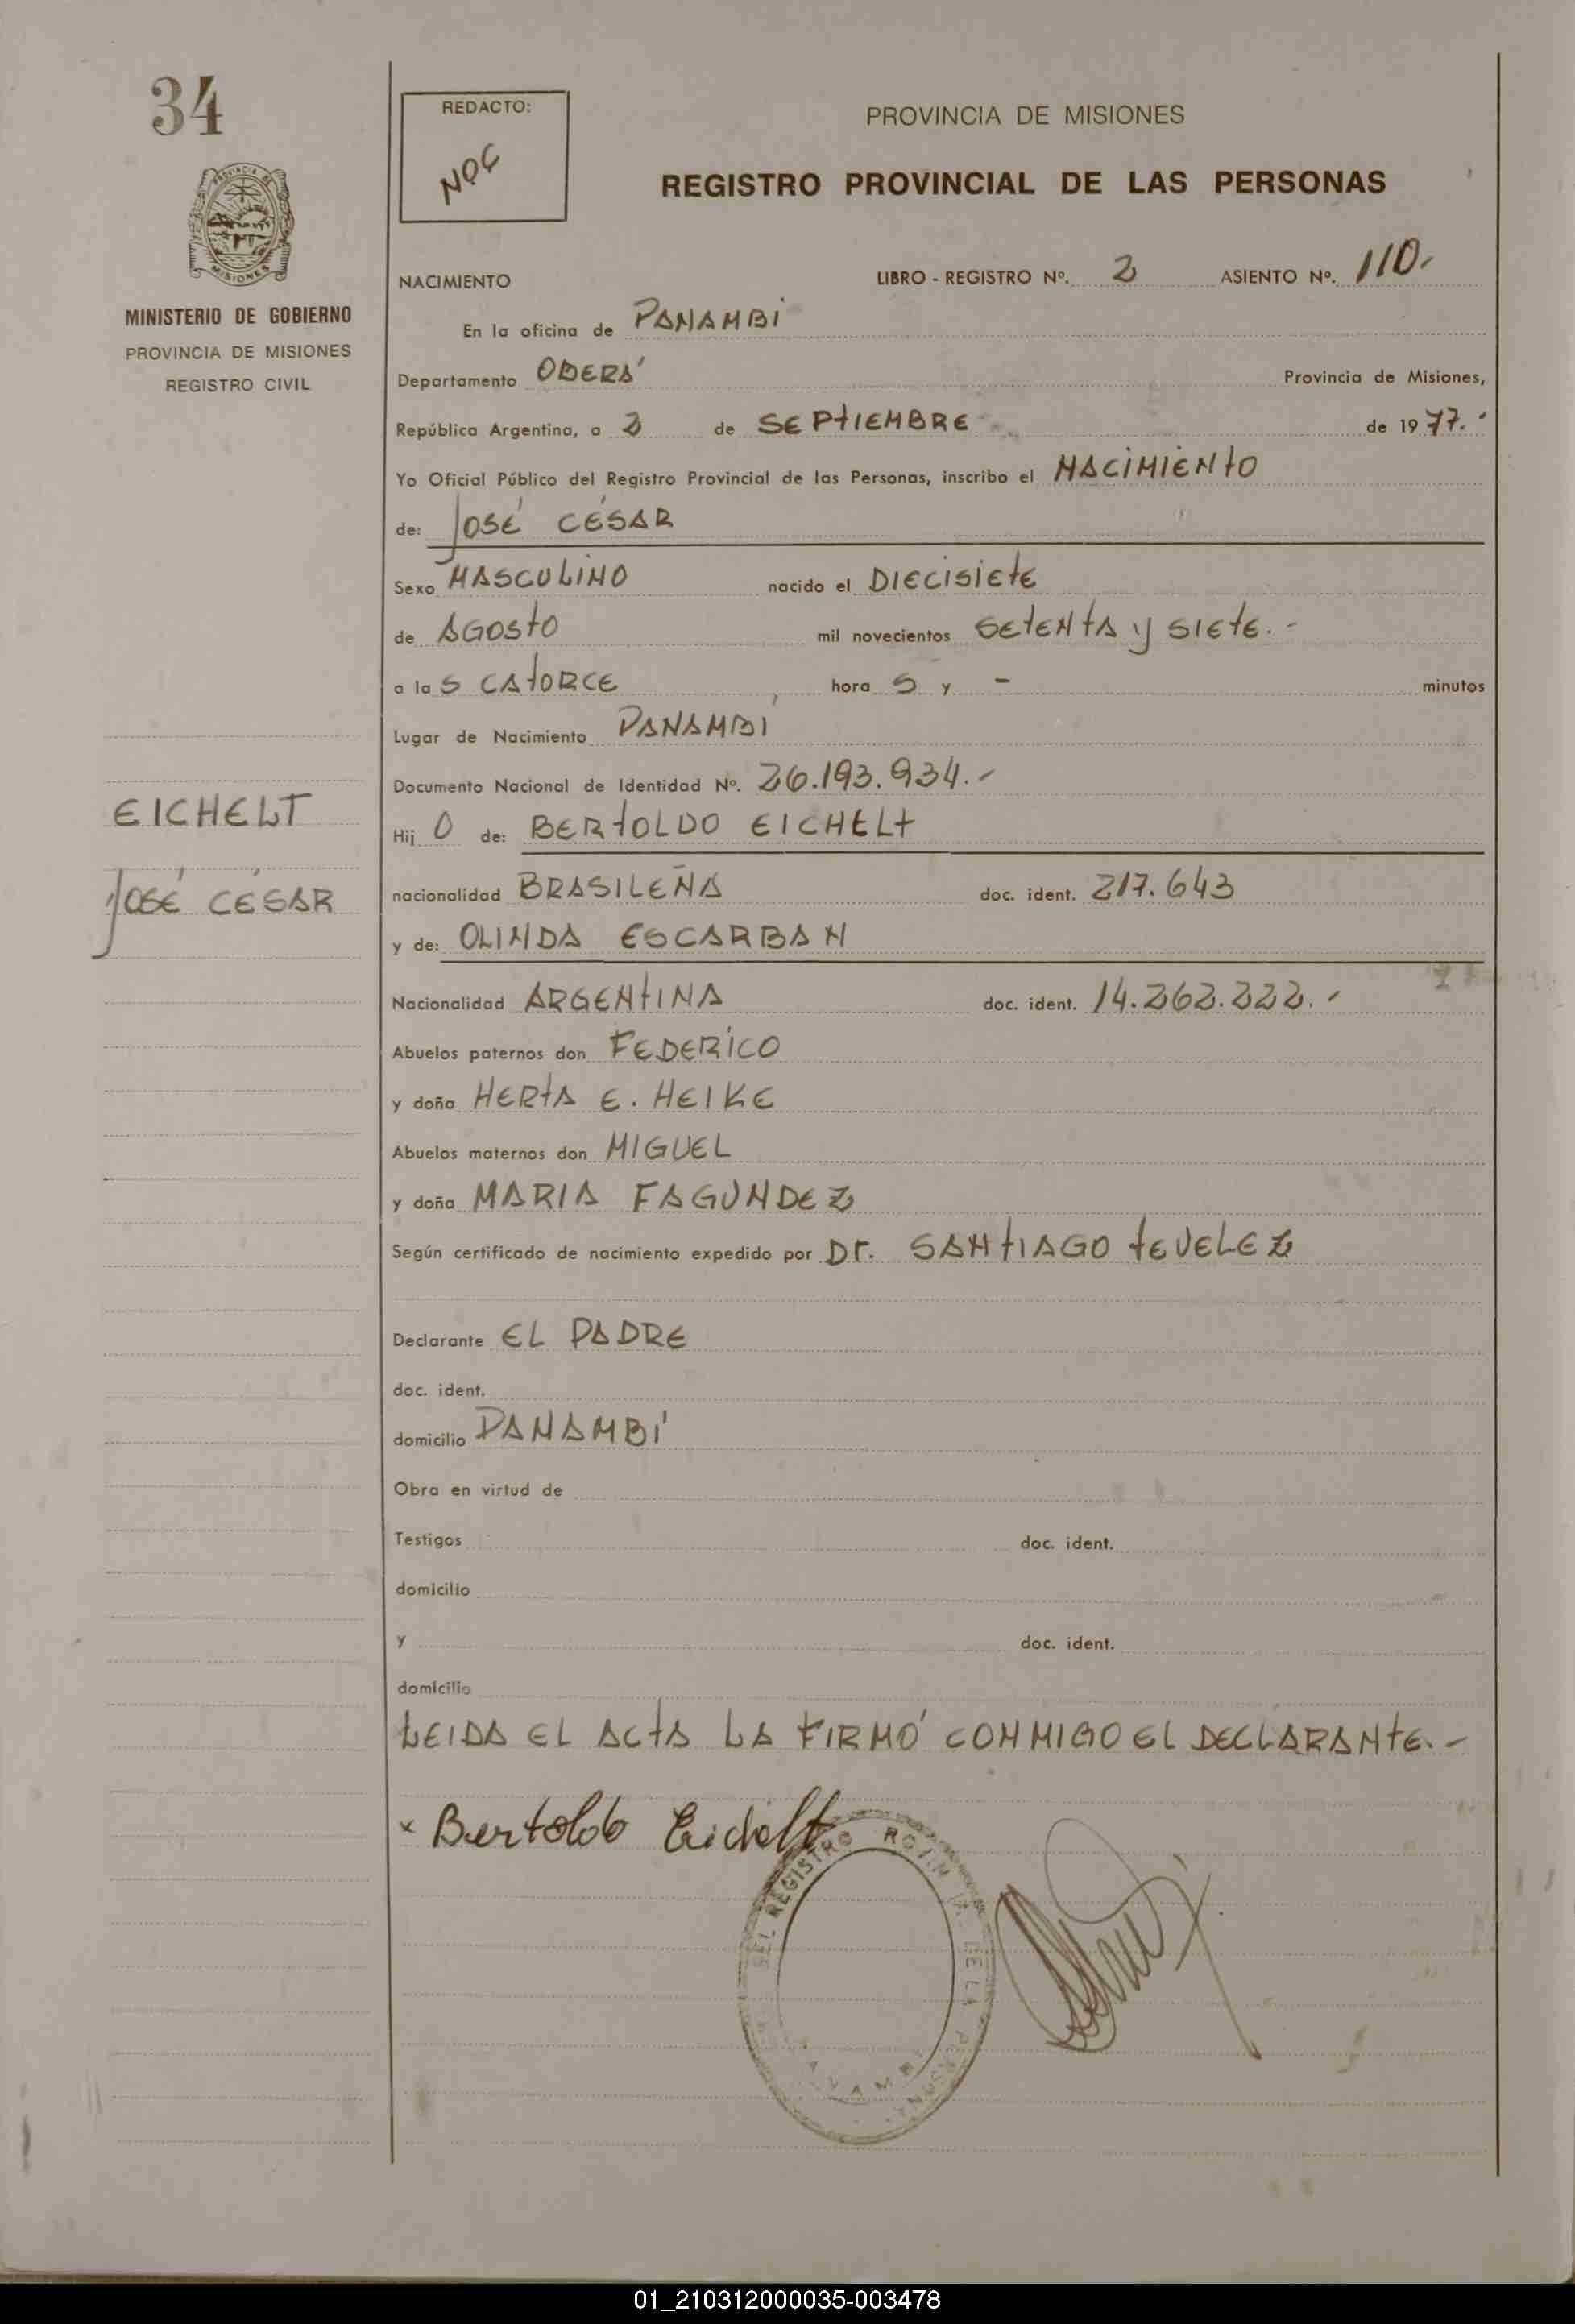 34
REDACTO:
NOG
PROVINCIA DE MISIONES
REGISTRO PROVINCIAL DE LAS PERSONAS
MISIONES
MINISTERIO DE GOBIERNO
PROVINCIA DE MISIONES
REGISTRO CIVIL
NACIMIENTO LIBRO - REGISTRO Nº. 2 ASIENTO Nº. 110.
En la oficina de PANAMBÍ
Departamento OBERÁ Provincia de Misiones,
República Argentina, a 2 de SEPTIEMBRE de 1977.
Yo Oficial Público del Registro Provincial de las Personas, inscribo el NACIMIENTO
de: JOSÉ CÉSAR
Sexo MASCULINO nacido el DIECISIETE
de AGOSTO mil novecientos SETENTA y SIETE.-
a las CATORCE hora S y - minutos
Lugar de Nacimiento PANAMBÍ
Documento Nacional de Identidad Nº. 26.193.934.-
EICHELT
JOSÉ CÉSAR
Hij O de: BERTOLDO EICHELT
nacionalidad BRASILEÑA doc. ident. 217.643
y de: OLINDA ESCARBAN
Nacionalidad ARGENTINA doc. ident. 14.262.222.-
Abuelos paternos don FEDERICO
y doña HERTA E. HEIKE
Abuelos maternos don MIGUEL
y doña MARIA FAGUNDEZ
Según certificado de nacimiento expedido por Dr. SANTIAGO TEVELEZ
Declarante EL PADRE
doc. ident.
domicilio PANAMBÍ
Obra en virtud de
Testigos doc. ident.
domicilio
y doc. ident.
domicilio
LEIDA EL ACTA LA FIRMÓ CONMIGO EL DECLARANTE.-
x Bertoldo Eichelt
DEL REGISTRO
01_210312000035-003478